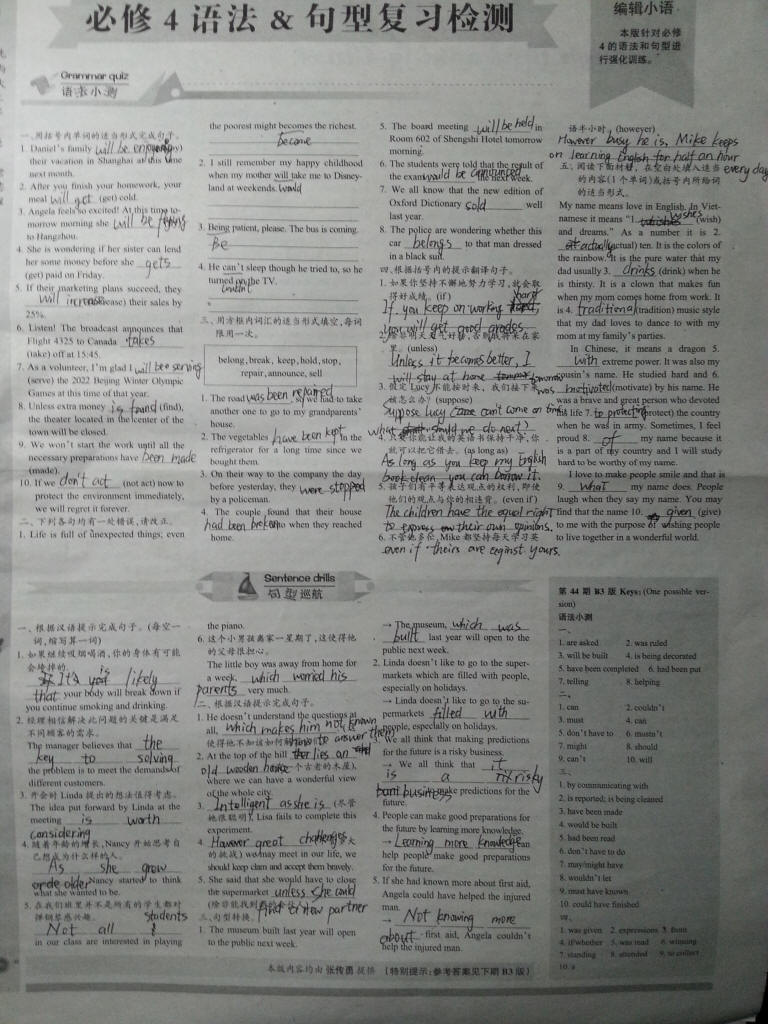 必修 4 语法 & 句型复习检测
编辑小语
本版针对必修
4 的语法和句型进
行强化训练。
Grammar quiz
语法小测
一、用括号内单词的适当形式完成句子。
1. Daniel's family will be enjoying
their vacation in Shanghai at this time
next month.
2. After you finish your homework, your
meal will get (get) cold.
3. Angela feels so excited! At this time to-
morrow morning she will be flying
to Hangzhou.
4. She is wondering if her sister can lend
her some money before she gets
(get) paid on Friday.
5. If their marketing plans succeed, they
will increase their sales by
25%.
6. Listen! The broadcast announces that
Flight 4325 to Canada takes
(take) off at 15:45.
7. As a volunteer, I'm glad I will be serving
(serve) the 2022 Beijing Winter Olympic
Games at this time of that year.
8. Unless extra money is found (find),
the theater located in the center of the
town will be closed.
9. We won't start the work until all the
necessary preparations have been made
(made).
10. If we don't act (not act) now to
protect the environment immediately,
we will regret it forever.
二、下列各句均有一处错误,请改正。
1. Life is full of unexpected things; even
the poorest might becomes the richest.
become
2. I still remember my happy childhood
when my mother will take me to Disney-
land at weekends. would
3. Being patient, please. The bus is coming.
Be
4. He can't sleep though he tried to, so he
turned on the TV.
couldn't
三、用方框内词汇的适当形式填空,每词
限用一次。
belong, break, keep, hold, stop,
repair, announce, sell
1. The road was been repaired, so we had to take
another one to go to my grandparents'
house.
2. The vegetables have been kept in the
refrigerator for a long time since we
bought them.
3. On their way to the company the day
before yesterday, they were stopped
by a policeman.
4. The couple found that their house
had been broken into when they reached
home.
5. The board meeting will be held in
Room 602 of Shengshi Hotel tomorrow
morning.
6. The students were told that the result of
the exam would be announced the next week.
7. We all know that the new edition of
Oxford Dictionary sold well
last year.
8. The police are wondering whether this
car belongs to that man dressed
in a black suit.
四、根据括号内的提示翻译句子。
1. 如果你坚持不懈地努力学习,就会取
得好成绩。(if)
If you keep on working hard,
you will get good grades.
里。(unless)
Unless it becomes better, I
will stay at home tomorrow
3. 假定 Lucy 不能按时来,我们接下来
该怎么办? (suppose)
Suppose Lucy can't come on time
what should we do next?
4. 只要你能让我的英语书保持干净,你
就可以把它借去。(as long as)
As long as you keep my English
book clean, you can borrow it.
5. 孩子们有平等表达观点的权利,即使
他们的观点与你的相违背。(even if)
The children have the equal right
to express their own opinions.
6. 不管他多忙, Mike 都坚持每天学习英
even if theirs are against yours.
语半小时。(however)
However busy he is, Mike keeps
on learning English for half an hour
every day
五、阅读下面材料,在空白处填入适当
的内容(1 个单词)或括号内所给词
的适当形式。
My name means love in English. In Viet-
namese it means "1. wishes (wish)
and dreams." As a number it is 2.
actually(actual) ten. It is the colors of
the rainbow. It is the pure water that my
dad usually 3. drinks (drink) when he
is thirsty. It is a clown that makes fun
when my mom comes home from work. It
is 4. traditional(tradition) music style
that my dad loves to dance to with my
mom at my family's parties.
In Chinese, it means a dragon 5.
with extreme power. It was also my
cousin's name. He studied hard and 6.
was motivated(motivate) by his name. He
was a brave and great person who devoted
his life 7. to protecting(protect) the country
when he was in army. Sometimes, I feel
proud 8. of my name because it
is a part of my country and I will study
hard to be worthy of my name.
I love to make people smile and that is
9. what my name does. People
laugh when they say my name. You may
find that the name 10. given (give)
to me with the purpose of wishing people
to live together in a wonderful world.
Sentence drills
句型巡航
一、根据汉语提示完成句子。(每空一
词,缩写算一词)
1. 如果继续吸烟喝酒,你的身体有可能
会垮掉的。
It is likely
that your body will break down if
you continue smoking and drinking.
2. 经理相信解决此问题的关键是满足
不同顾客的需求。
The manager believes that the
key to solving
the problem is to meet the demands of
different customers.
3. 开会时 Linda 提出的想法值得考虑。
The idea put forward by Linda at the
meeting is worth
considering
4. 随着年龄的增长, Nancy 开始思考自
己想成为什么样的人。
As she grow
older Nancy started to think
what she wanted to be.
5. 在我们班里并不是所有的学生都对
弹钢琴感兴趣。
Not all students
in our class are interested in playing
the piano.
6. 这个小男孩离家一星期了,这使得他
的父母很担心。
The little boy was away from home for
a week, which worried his
parents very much.
二、根据汉语提示完成句子。
1. He doesn't understand the questions at
all, which makes him not known
how to answer them
2. At the top of the hill lies an
old wooden house (一个古老的木屋),
where we can have a wonderful view
of the whole city.
3. Intelligent as she is (尽管
她很聪明), Lisa fails to complete this
experiment.
4. However great challenges
的挑战) we may meet in our life, we
should keep clam and accept them bravely.
5. She said that she would have to close
the supermarket unless she could
find a new partner
三、句型转换。
1. The museum built last year will open
to the public next week.
→ The museum, which was
built last year will open to the
public next week.
2. Linda doesn't like to go to the super-
markets which are filled with people,
especially on holidays.
→ Linda doesn't like to go to the su-
permarkets filled with
people, especially on holidays.
3. We all think that making predictions
for the future is a risky business.
→ We all think that it
is a risky
business to make predictions for the
future.
4. People can make good preparations for
the future by learning more knowledge.
→ Learning more knowledge can
help people make good preparations
for the future.
5. If she had known more about first aid,
Angela could have helped the injured
man.
→ Not knowing more
about first aid, Angela couldn't
help the injured man.
第 44 期 B3 版 Keys: (One possible ver-
sion)
语法小测
一、
1. are asked 2. was ruled
3. will be built 4. is being decorated
5. have been completed 6. had been put
7. telling 8. helping
二、
1. can 2. couldn't
3. must 4. can
5. don't have to 6. mustn't
7. might 8. should
9. can't 10. will
三、
1. by communicating with
2. is reported; is being cleaned
3. have been made
4. would be built
5. had been read
6. don't have to do
7. may/might have
8. wouldn't let
9. must have known
10. could have finished
四、
1. was given 2. expressions 3. from
4. if/whether 5. was read 6. winning
7. standing 8. attended 9. to collect
10. a
本版内容均由 张传勇 提供 (特别提示:参考答案见下期 B3 版)